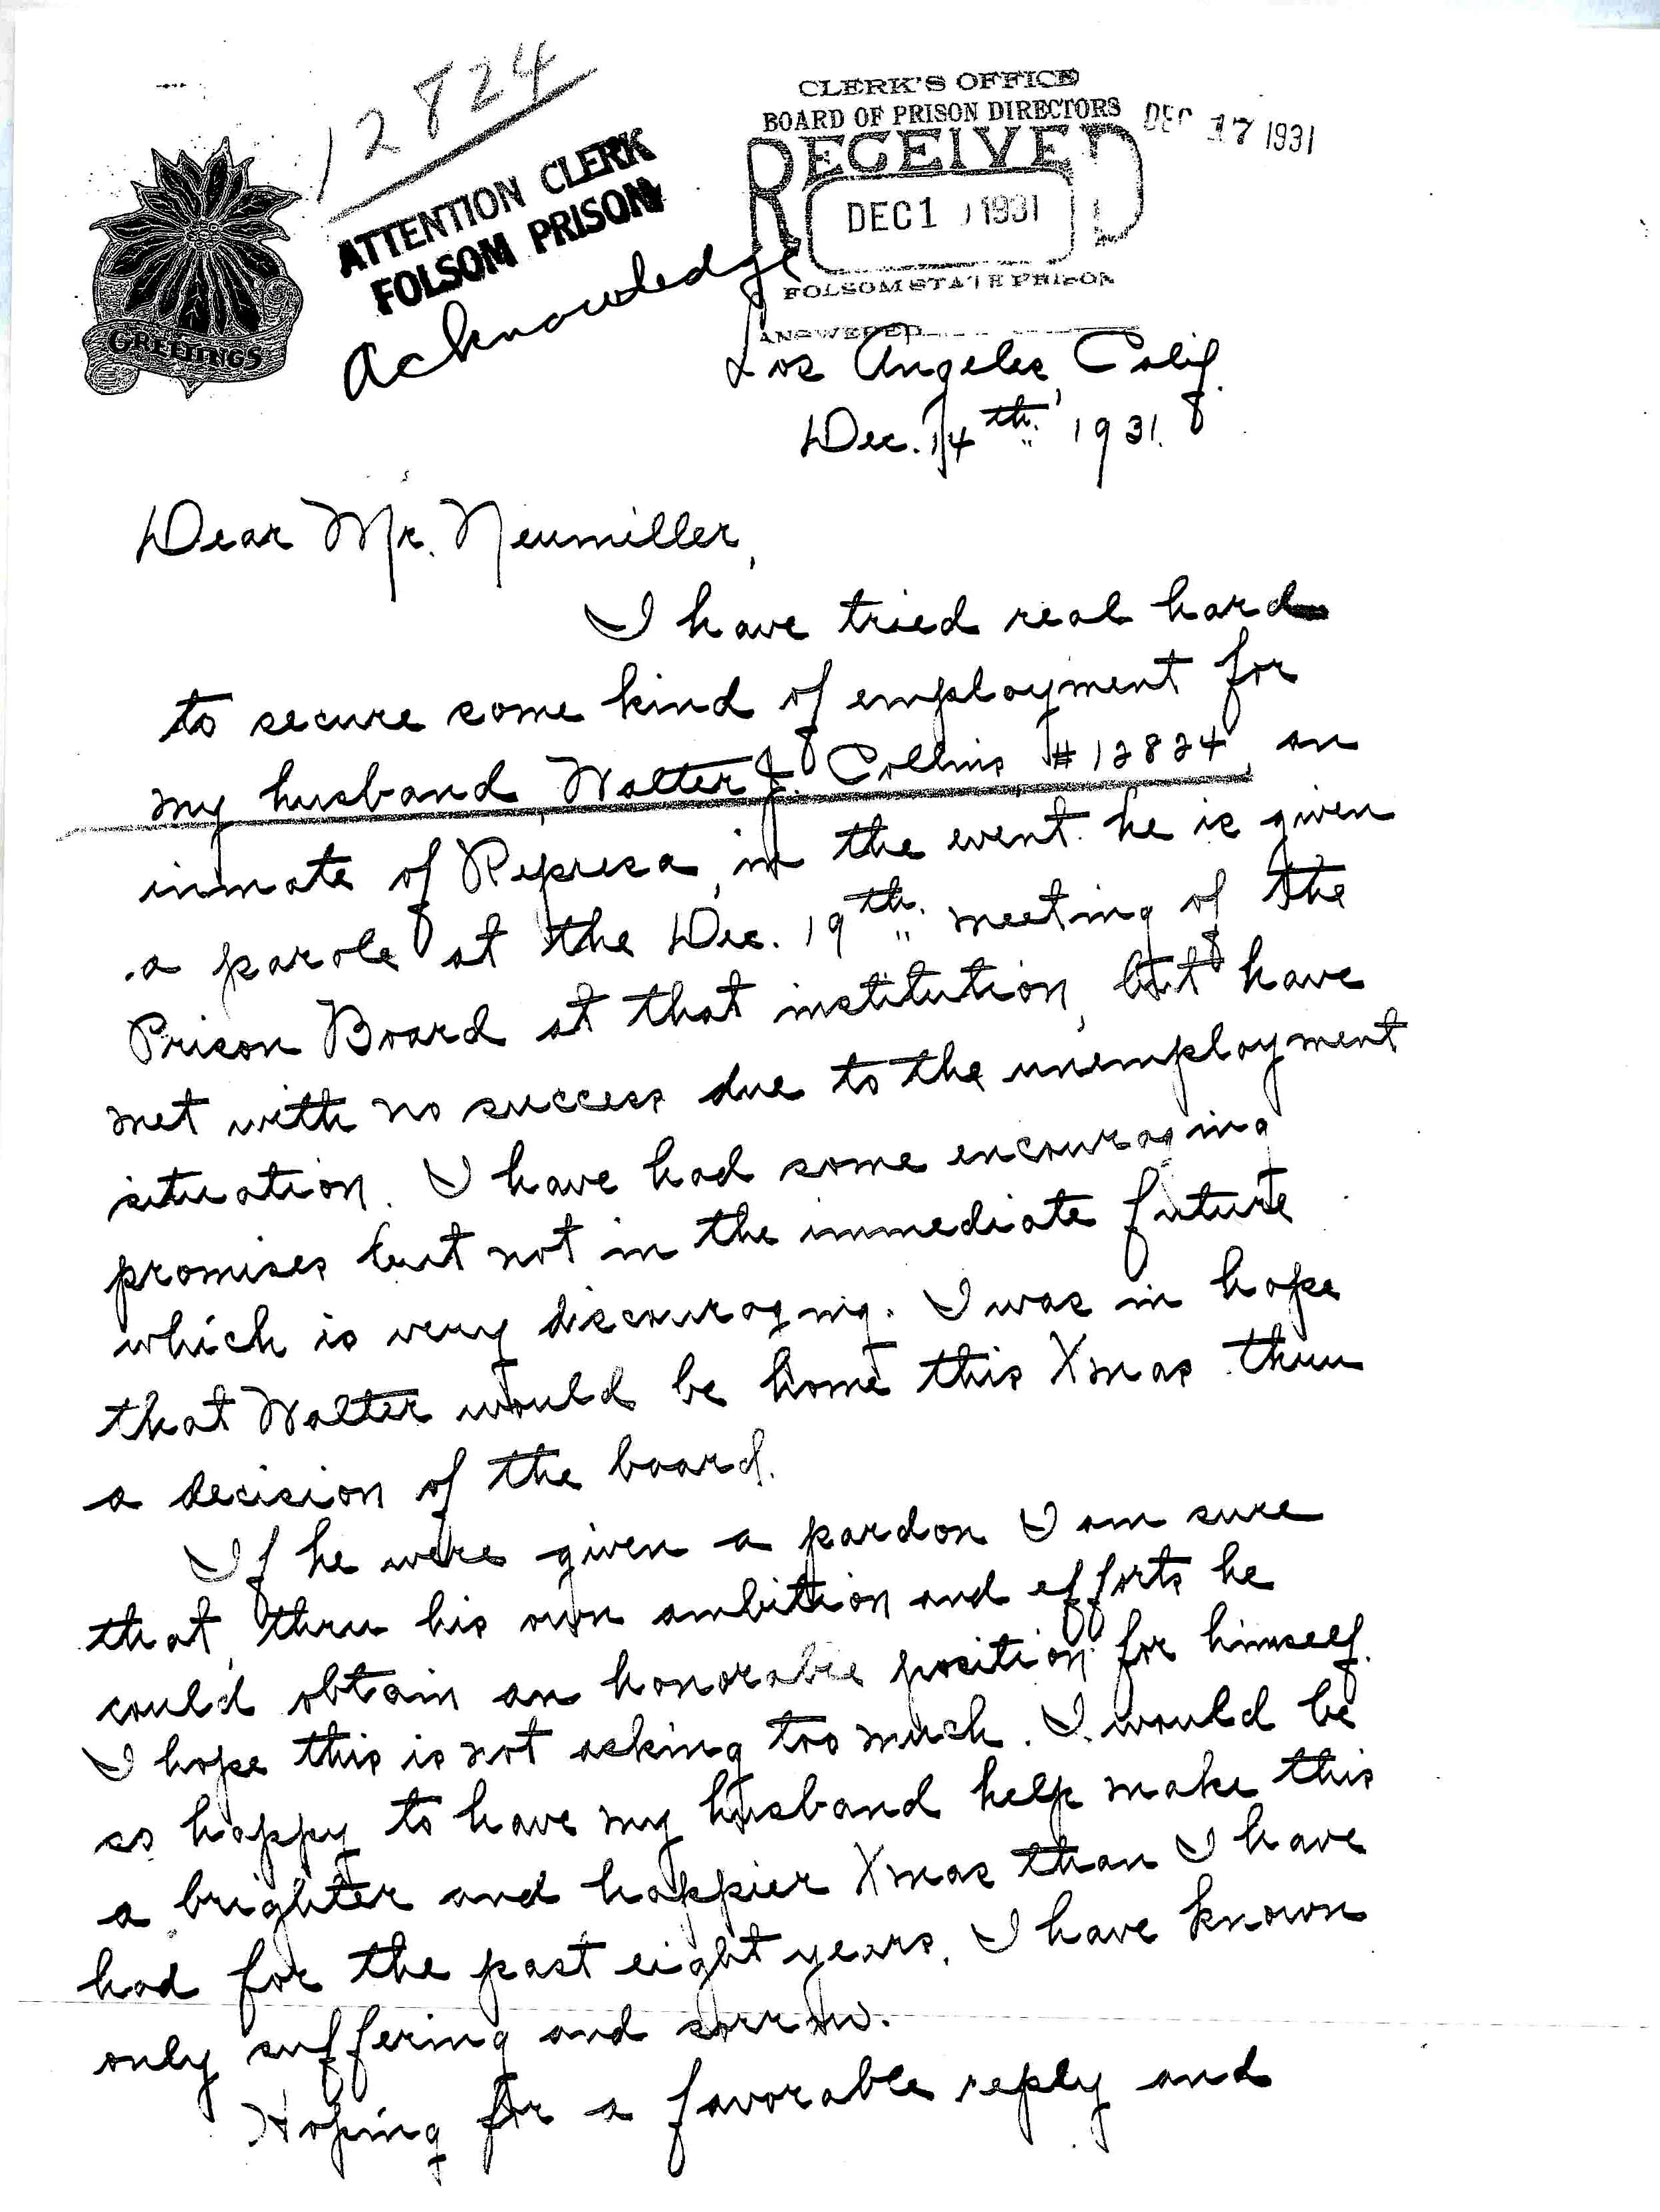 12824
CLERK'S OFFICE
BOARD OF PRISON DIRECTORS
DEC 17 1931
RECEIVED
DEC 1 1931
FOLSOM STATE PRISON
ANSWERED
ATTENTION CLERK
FOLSOM PRISON
Acknowledge
GREETINGS
Los Angeles, Calif.
Dec. 14th, 1931.
Dear Mr. Neumiller,
I have tried real hard
to secure some kind of employment for
my husband, Walter J. Collins #12824, an
inmate of Represa, in the event he is given
a parole at the Dec. 19th meeting of the
Prison Board at that institution, but have
met with no success due to the unemployment
situation. I have had some encouraging
promises but not in the immediate future
which is very discouraging. I was in hope
that Walter would be home this Xmas thru
a decision of the board.
If he were given a pardon I am sure
that, thru his own ambition and efforts he
could obtain an honorable position for himself.
I hope this is not asking too much. I would be
so happy to have my husband help make this
a brighter and happier Xmas than I have
had for the past eight years. I have known
only suffering and sorrow.
Hoping for a favorable reply and